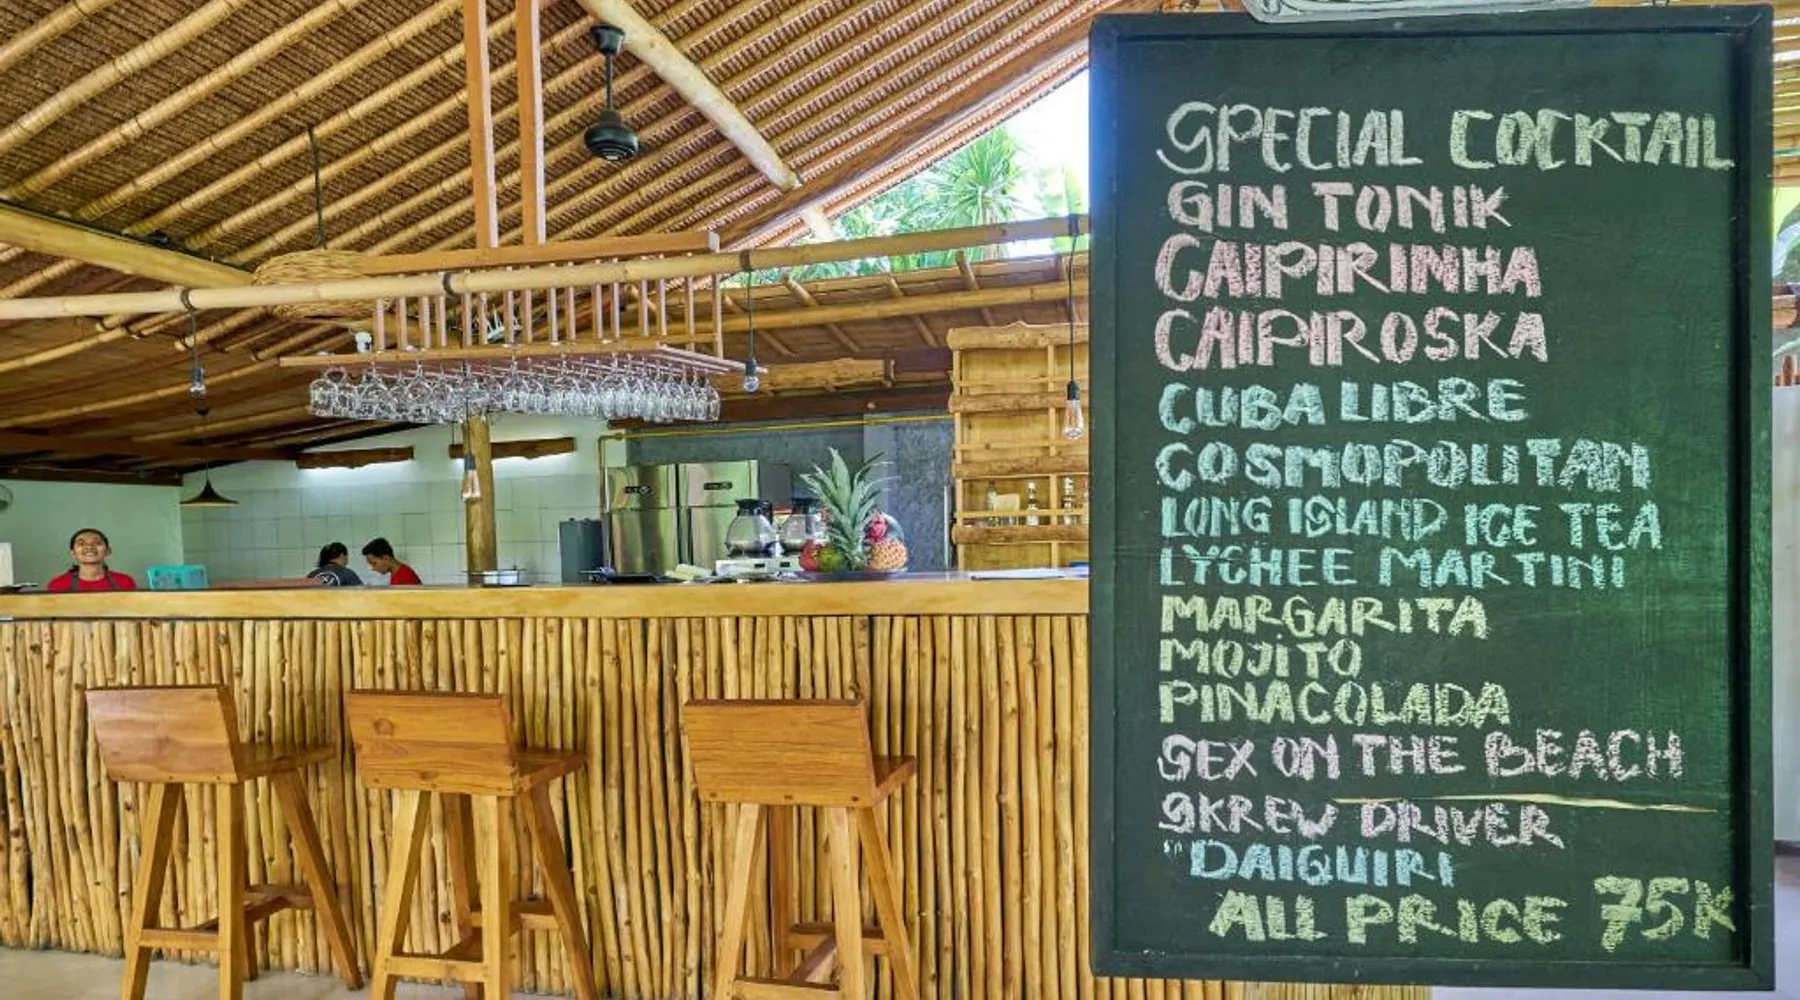 SPECIAL COCKTAIL
GIN TONIK
CAIPIRINHA
CAIPIROSKA
CUBA LIBRE
COSMOPOLITAN
LONG ISLAND ICE TEA
LYCHEE MARTINI
MARGARITA
MOJiTO
PINACOLADA
SEX ON THE BEACH
SKREW DRIVER
"DAIQUIRI
ALL PRICE 75K